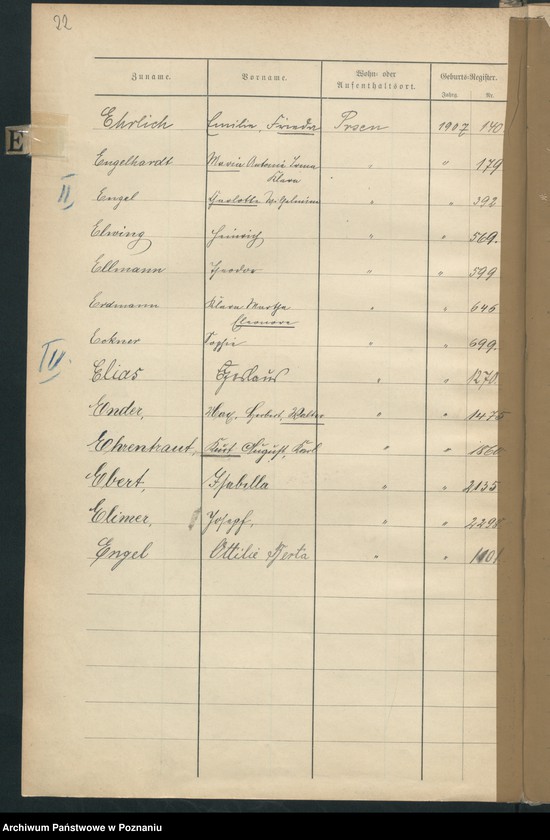 22
Zuname. Vorname. Wohn- oder Aufenthaltsort. Geburts-Register.
Jahrg. Nr.
E
Ehrlich Emilie, Frieda Posen 1907 140
Engelhardt Maria Antonie Irma " " 179
Klara
II
Engel Charlotte Wilhelmine " " 392
Elwing Heinrich " " 569.
Ellmann Theodor " " 599
Erdmann Klara Martha " " 646
Eleonore
Eckner Sophie " " 699.
IV.
Elias " " 1270.
Ender, Max, Herbert, Walter " " 1475
Ehrentraut, Kurt August, Karl " " 1860
Ebert, Isabella " " 2135
Elimer, Josepf, " " 2298
Engel Ottilie Berta " " 1101
Archiwum Państwowe w Poznaniu